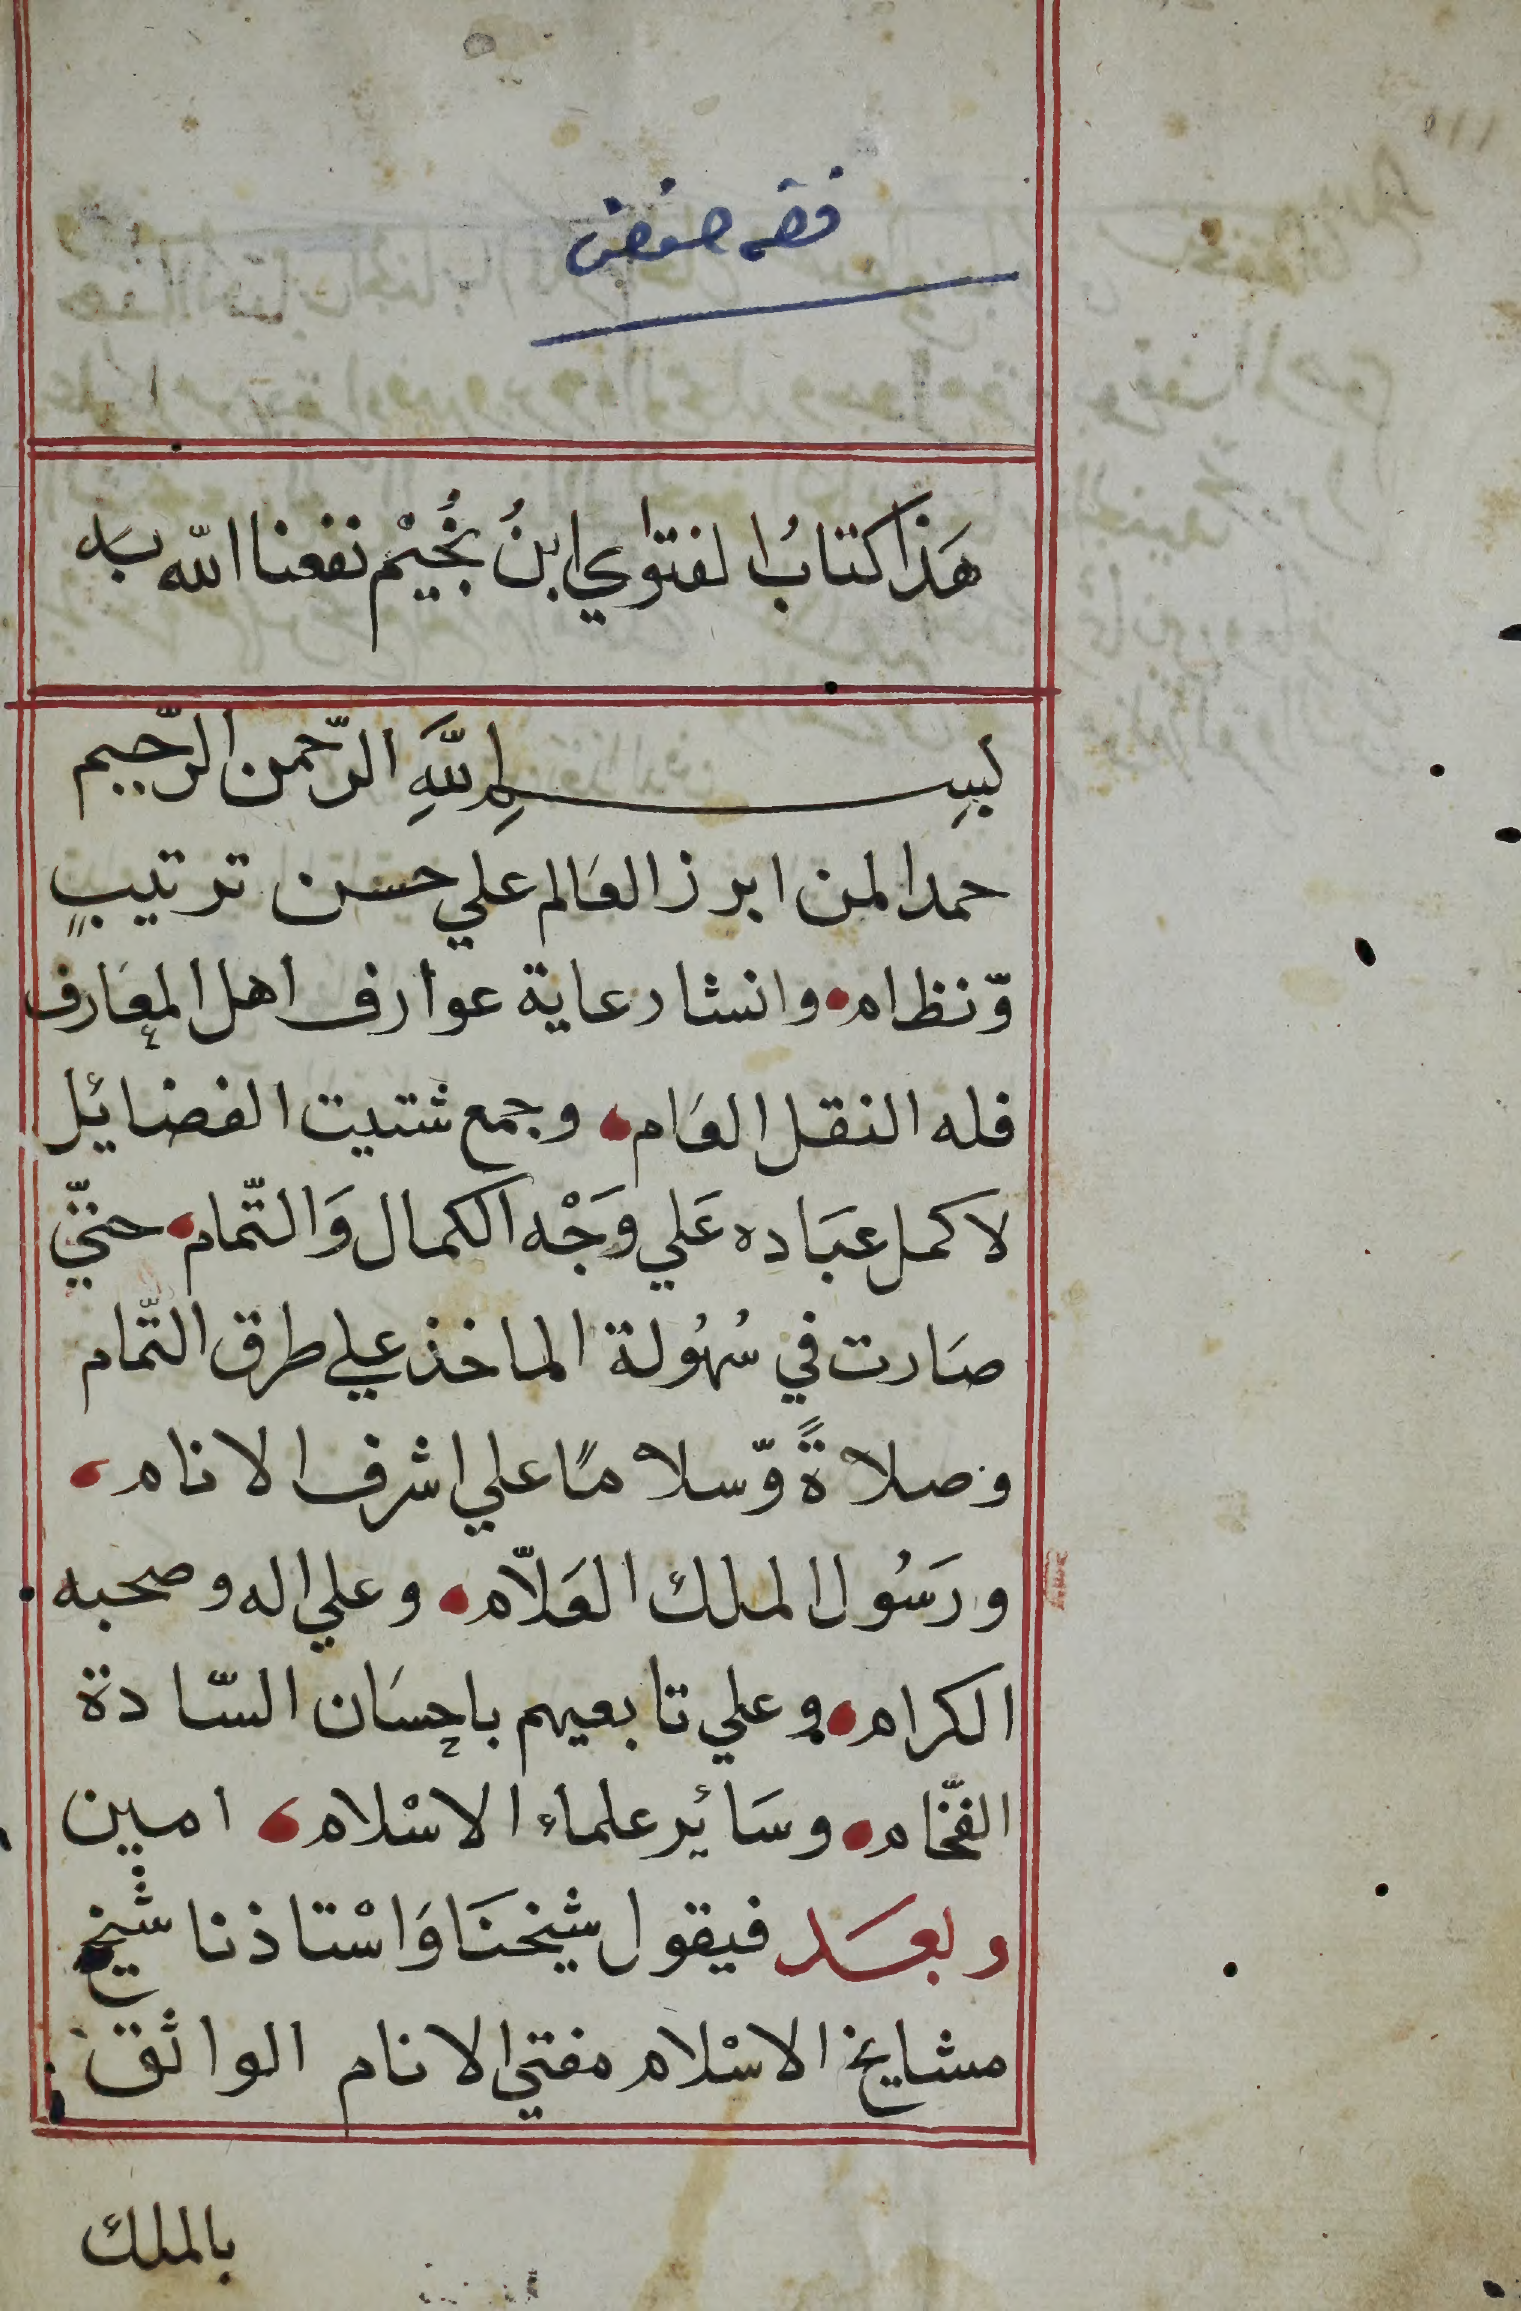 فقه حنفي
هَذا كتابُ الفتوي ابنُ نُجُيْم نفعنا الله به
بسم اللَّهِ الرّحمن الرّحيم
حمدا لمن ابرز العَالم علي حسن ترتيبٍ
وّنظام، وانشا رعاية عوارف اهل المعَارف
فله النقل العَام، وجمع شتيت الفضائل
لاكمل عبَاده عَلي وَجْه الكمال وَالتّمام، حتيّ
صَارت في سُهُولة الماخذ علي طرق التّمام
وصلاةً وّسلامًا علي اشرف الانام،
ورَسُول الملك العَلاّم، وعلي اله وصحبه
الكرام، وعلي تابعيهم باحسَان السّادة
الفخّام، وسَائر علماء الاسْلام، امين
وبعَد فيقول شيخنَا وَاسْتاذنا شيخ
مشايخ الاسْلام مفتي الانام الواثق
بالملك